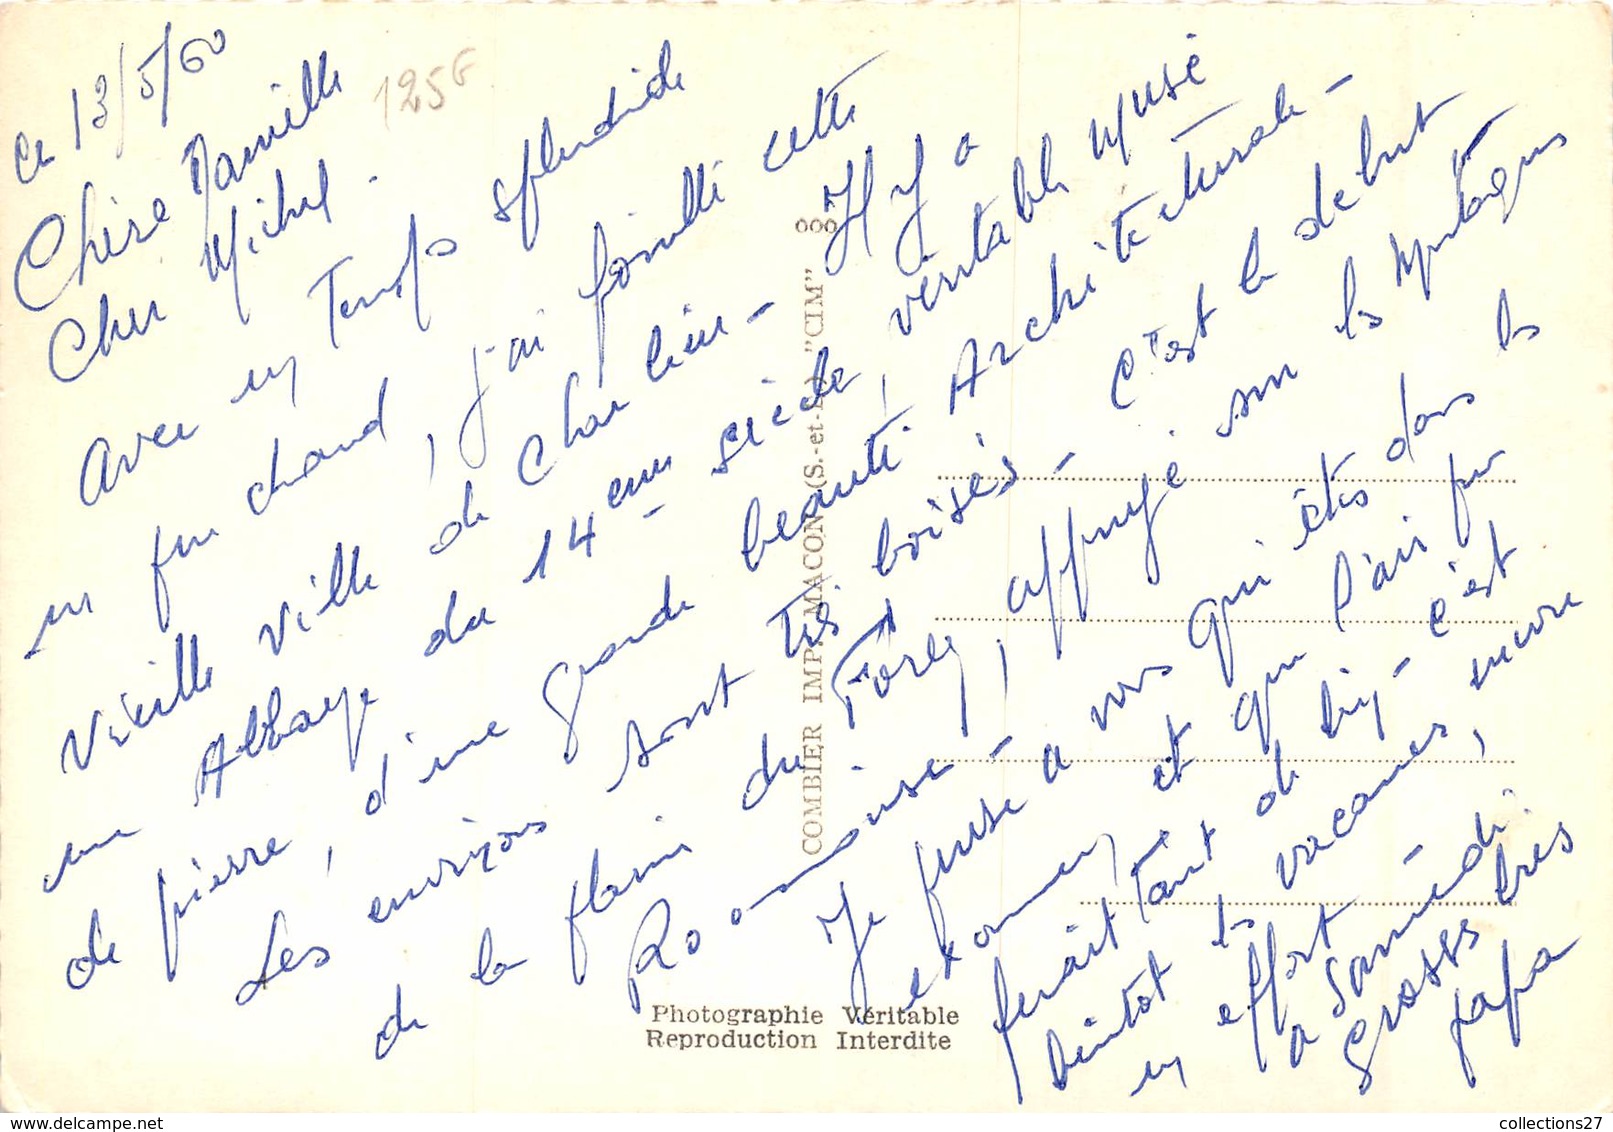 Ce 13/5/60
125 F
Chère Danielle
Cher Michel.
Avec un Temps splendide
un peu chaud, j'ai fouillé cette
Vieille Ville de Charlieu - Il y a
une Abbaye du 14 eme siècle, véritable musé
de pierre, d'une grande beauté Architecturale -
Les environs sont très boisés - c'est le debut
de la plaine du Forez, appuyé sur les Montagnes
Roannaise -
Je pense a vous qui êtes dans les
examens et que l'air pur
ferait tant de bien - c'est
bientot les vacances, encore
un effort
a Samedi.
Grosses bises
papa
COMBIER IMP. MACON (S.-et-L.) "CIM"
Photographie Véritable
Reproduction Interdite
collections27